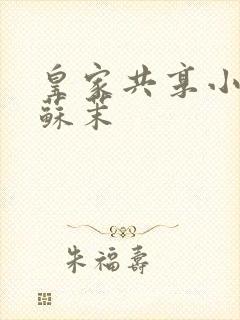 皇家共享小
蘇茉
朱福壽